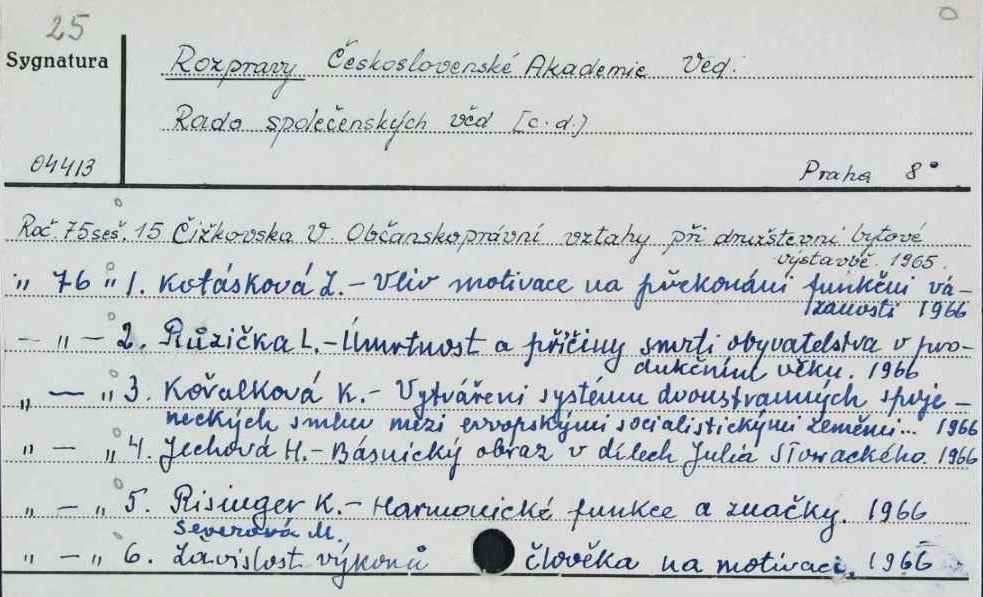 25
Sygnatura
Rozpravy Československé Akademie Věd.
Rada společenských věd [c.d.)
04413
Praha 8°
Roč. 75 seš. 15 Čižkovska V. Občanskoprávní vztahy při družstevní bytové
výstavbě. 1965.
" 76 " 1. Kotásková J. - Vliv motivace na překonání funkčni vá-
zanosti 1966
— " — 2. Růzička L. - Úmrtnost a příčiny smrti obyvatelstva v pro-
dukčním věku. 1966
" — " 3. Kořalková K. - Vytvářeni systému dvoustranných spoje-
neckých smluv mezi evropskými socialistickými zeměmi... 1966
" — " 4. Jechová H. - Básnický obraz v dílech Julia Słowackého. 1966
" — " 5. Risinger K. - Harmonické funkce a značky. 1966
Severová M.
" — " 6. Závislost výkonů člověka na motivaci. 1966